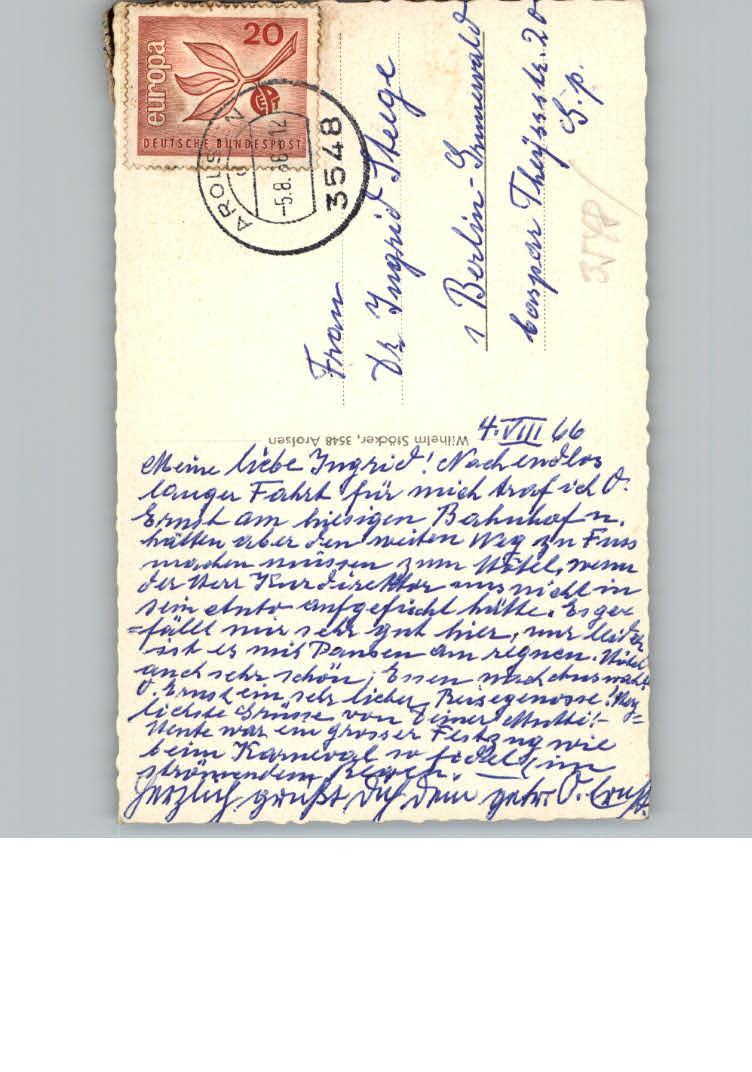 europa
20
DEUTSCHE BUNDESPOST
AROLSEN
-5.8.66
3548
Frau
Dr. Ingrid Stege
1 Berlin-Grunewald
Caspar Theyssstr. 20
3548
Wilhelm Stöcker, 3548 Arolsen
4. VIII 66
Meine liebe Ingrid! Nach endlos
langer Fahrt für mich traf ich O.
Ernst am hiesigen Bahnhof u.
hätten aber den weiten Weg zu Fuss
machen müssen zum Hotel, wenn
der Herr Kurdirektor uns nicht in
sein Auto aufgefischt hätte. Es ge=
=fällt mir sehr gut hier, nur leider
ist es mit Pausen am regnen. Hotel
auch sehr schön, Essen nach Auswahl
O. Ernst ein sehr lieber Reisegenosse! Herz=
lichste Grüsse von Deiner Mutti!-
Heute war ein grosser Festzug wie
beim Karneval so fidel (im
strömendem Regen.
Herzlich grüßt Dich Dein getr. O. Ernst.